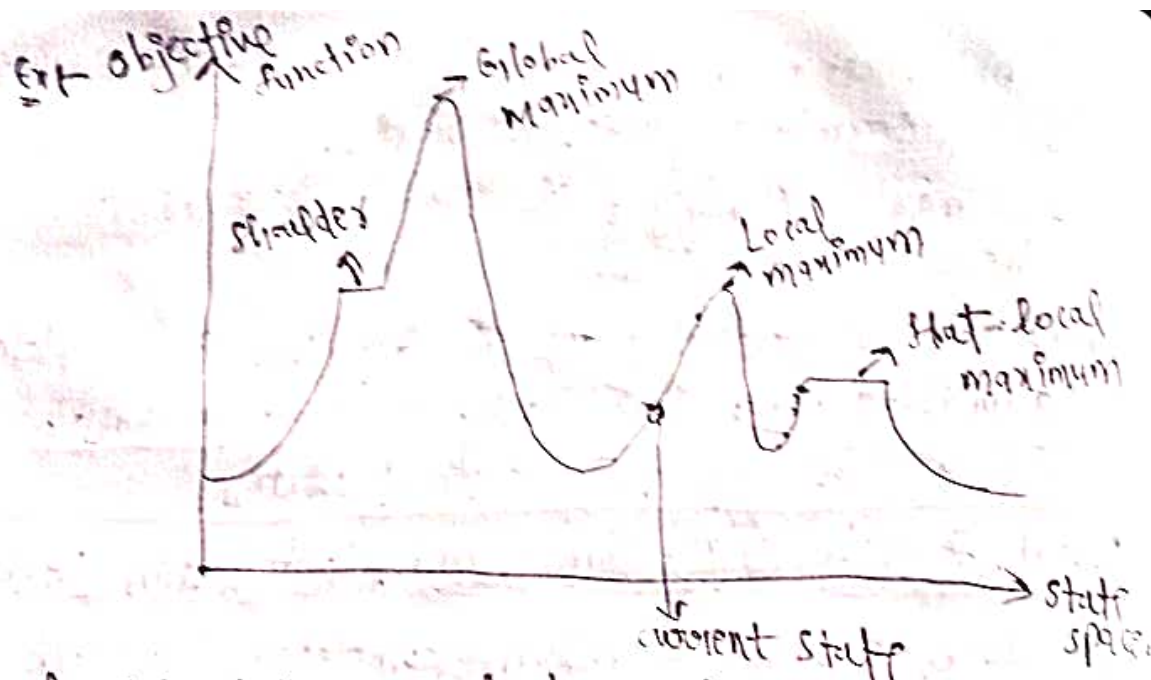 Ex:- Objective
function
Global
Maximum
Shoulder
Local
maximum
flat-local
maximum
current state
State
space